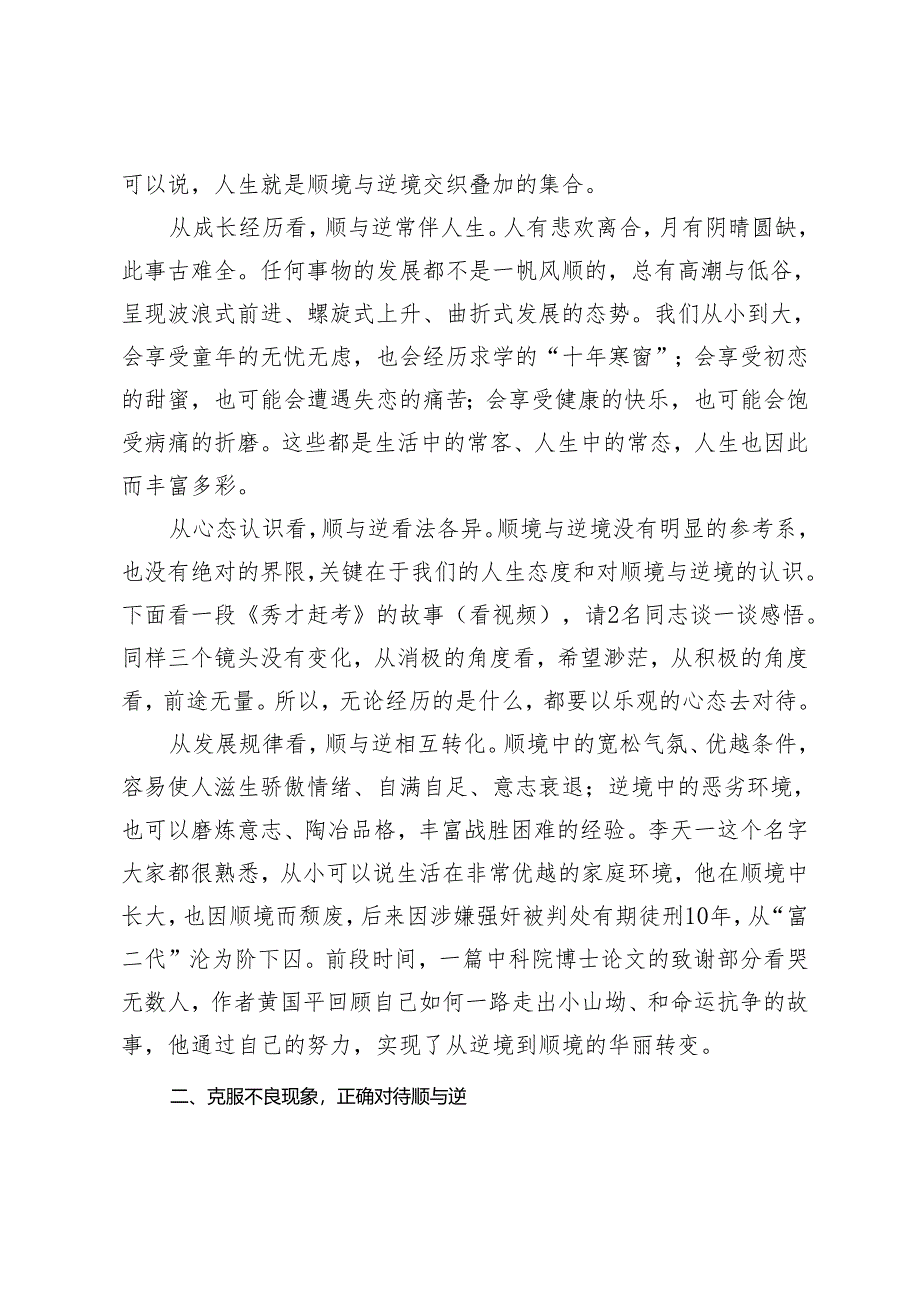 可以说，人生就是顺境与逆境交织叠加的集合。
从成长经历看，顺与逆常伴人生。人有悲欢离合，月有阴晴圆缺，
此事古难全。任何事物的发展都不是一帆风顺的，总有高潮与低谷，
呈现波浪式前进、螺旋式上升、曲折式发展的态势。我们从小到大，
会享受童年的无忧无虑，也会经历求学的“十年寒窗”；会享受初恋
的甜蜜，也可能会遭遇失恋的痛苦；会享受健康的快乐，也可能会饱
受病痛的折磨。这些都是生活中的常客、人生中的常态，人生也因此
而丰富多彩。
从心态认识看，顺与逆看法各异。顺境与逆境没有明显的参考系，
也没有绝对的界限，关键在于我们的人生态度和对顺境与逆境的认识。
下面看一段《秀才赶考》的故事（看视频），请2名同志谈一谈感悟。
同样三个镜头没有变化，从消极的角度看，希望渺茫，从积极的角度
看，前途无量。所以，无论经历的是什么，都要以乐观的心态去对待。
从发展规律看，顺与逆相互转化。顺境中的宽松气氛、优越条件，
容易使人滋生骄傲情绪、自满自足、意志衰退；逆境中的恶劣环境，
也可以磨炼意志、陶冶品格，丰富战胜困难的经验。李天一这个名字
大家都很熟悉，从小可以说生活在非常优越的家庭环境，他在顺境中
长大，也因顺境而颓废，后来因涉嫌强奸被判处有期徒刑10年，从“富
二代”沦为阶下囚。前段时间，一篇中科院博士论文的致谢部分看哭
无数人，作者黄国平回顾自己如何一路走出小山坳、和命运抗争的故
事，他通过自己的努力，实现了从逆境到顺境的华丽转变。
二、克服不良现象，正确对待顺与逆